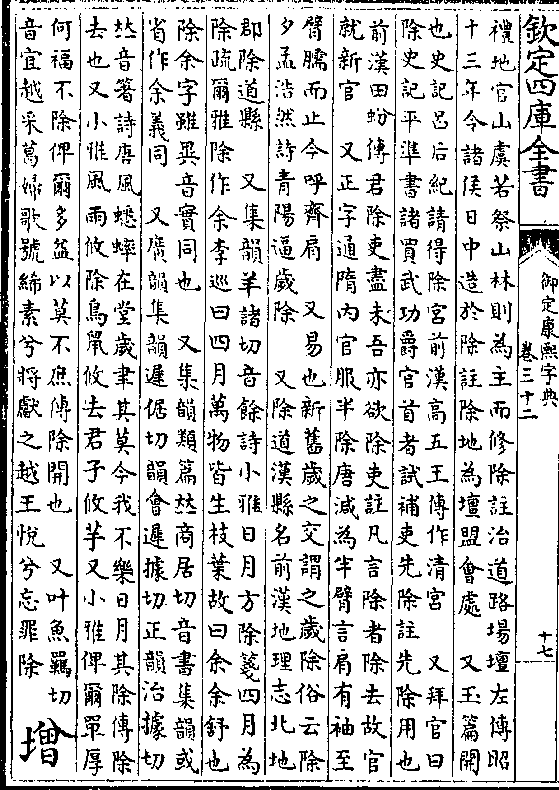 欽定四庫全書
御定康熙字典
卷三十二
十七
禮地官山虞若祭山林則為主而修除註治道路場壇左傳昭
十三年令諸侯日中造於除註除地為壇盟會處 又玉篇開
也史記呂后紀請得除宮前漢高五王傳作清宮 又拜官曰
除史記平準書諸買武功爵官首者試補吏先除註先除用也
前漢田蚡傳君除吏盡未吾亦欲除吏註凡言除者除去故官
就新官 又正字通隋內官服半除唐減為半臂言肩有袖至
臂臑而止今呼齊肩 又易也新舊歲之交謂之歲除俗云除
夕孟浩然詩青陽逼歲除 又除道漢縣名前漢地理志北地
郡除道縣 又集韻羊諸切音餘詩小雅日月方除箋四月為
除疏爾雅除作余李巡曰四月萬物皆生枝葉故曰余余舒也
除余字雖異音實同也 又集韻類篇𠀤商居切音書集韻或
省作余義同 又廣韻集韻遲倨切韻會遲據切正韻治據切
𠀤音箸詩唐風蟋蟀在堂歲聿其莫今我不樂日月其除傳除
去也又小雅風雨攸除鳥鼠攸去君子攸芋又小雅俾爾單厚
何福不除俾爾多益以莫不庶傳除開也 又叶魚羈切
音宜越采葛婦歌號絺素兮將獻之越王悅兮忘罪除
增